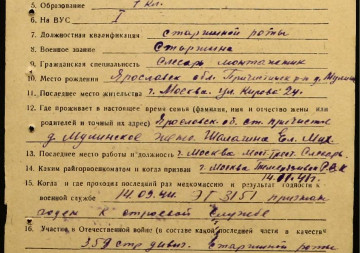 5. Образование 7 кл.
6. На ВУС I
7. Должностная квалификация старшиной роты
8. Военное звание Старшина
9. Гражданская специальность Слесарь монтажник
10. Место рождения Ярославск. обл. р-н д.
11. Последнее место жительства г. Москва ул. Кирова 24.
12. Где проживает в настоящее время семья (фамилия, имя и отчество жены или
родителей и точный их адрес) Яросл. обл. ст. пречистое
д. Мулинское
13. Последнее место работы и должность г. Москва слесарь
14. Каким райгорвоенкоматом и когда призван г. Москва Р.В.К
15. Когда и где проходил последний раз медкомиссию и результат годности к
военной службе 14.09.44. ЭГ 3151 признан
годен к строевой службе
16. Участие в Отечественной войне (в составе какой последней части и в качестве
359 стр дивиз. Старшиной роты